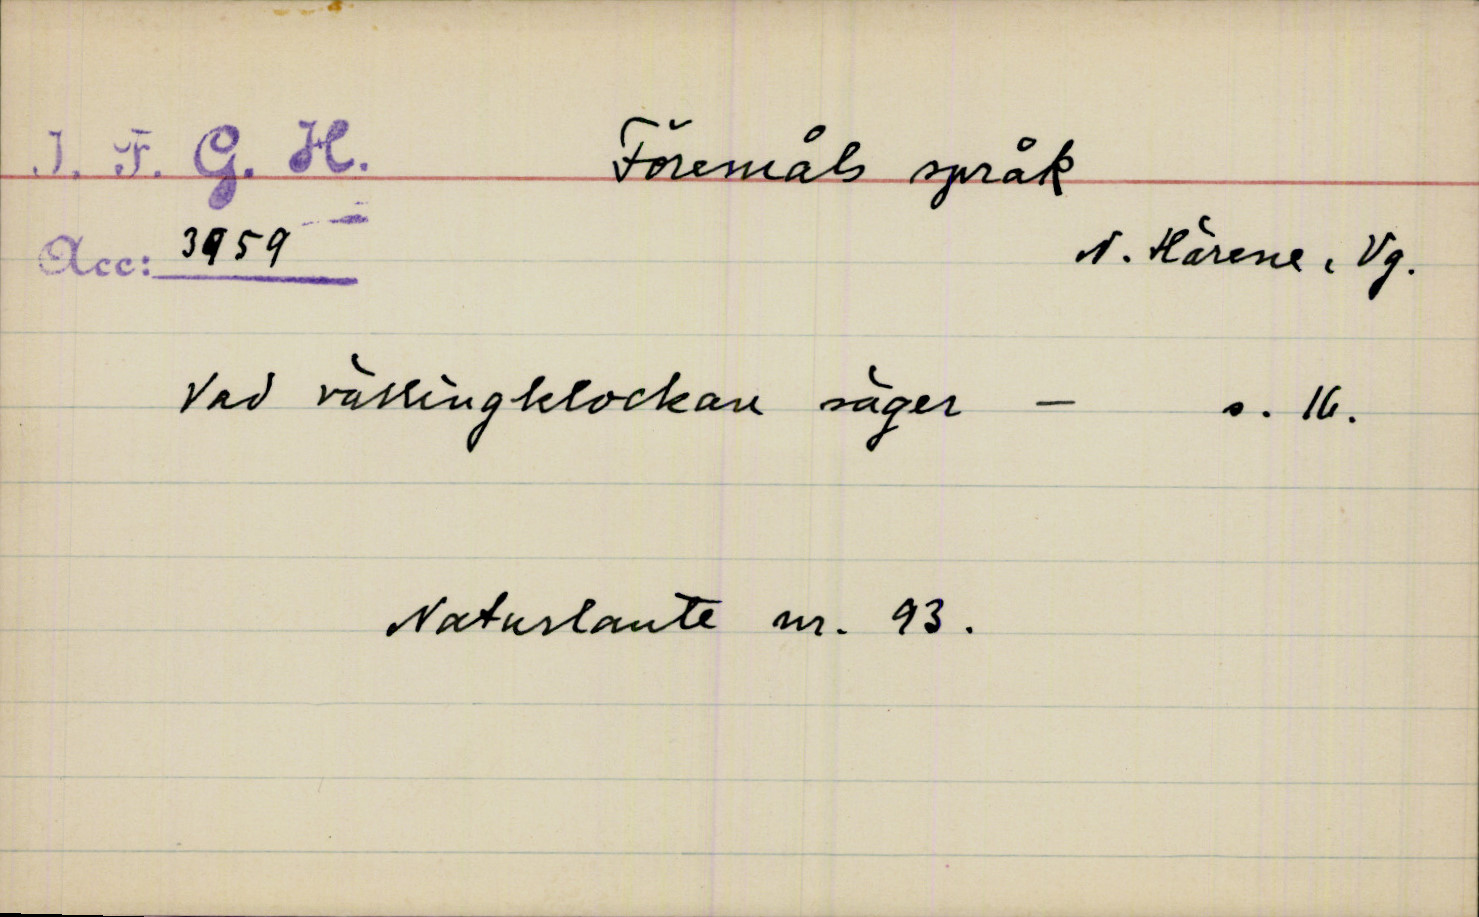 I. F. G. H.
Föremåls språk
Acc: 3959
N. Härene, Vg.
Vad vällingklockan säger – s. 16.
Naturlaute nr. 93.